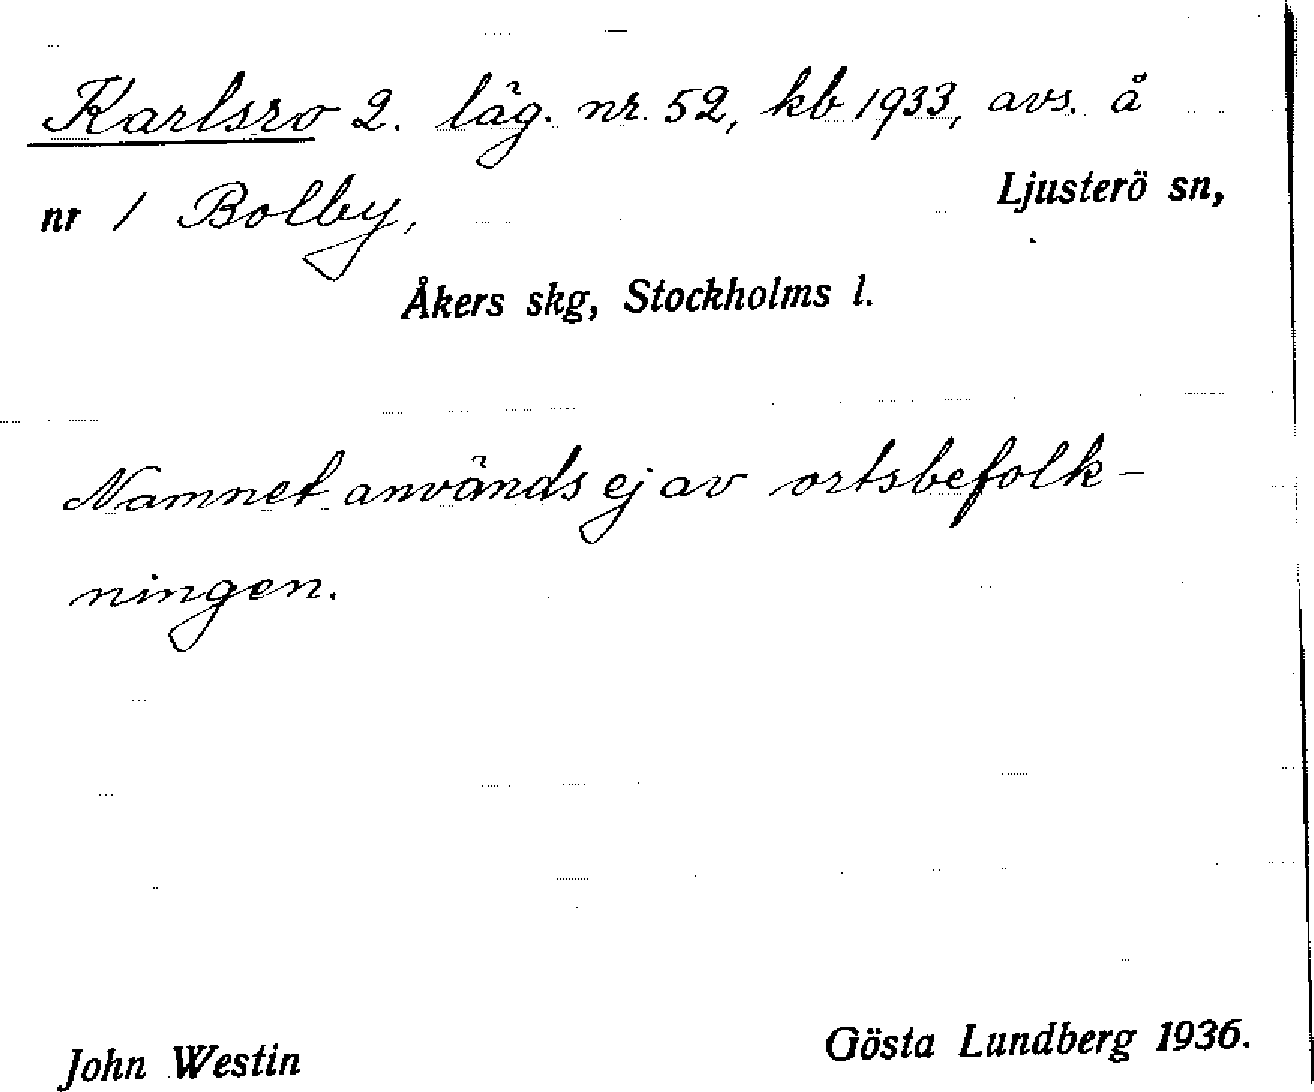 Karlsro 2. läg. nr. 52, kb 1933, avs. å
nr 1 Bolby, Ljusterö sn,
Åkers skg, Stockholms l.
Namnet används ej av ortsbefolk-
ningen.
John Westin Gösta Lundberg 1936.